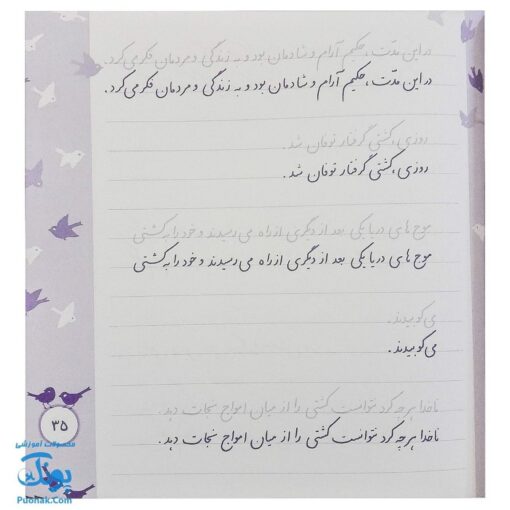 در این مدّت، حکیم آرام و شادمان بود و به زندگی و مردمان فکر می‌کرد.
در این مدّت، حکیم آرام و شادمان بود و به زندگی و مردمان فکر می‌کرد.
روزی، کشتی گرفتار توفان شد.
روزی، کشتی گرفتار توفان شد.
موج های دریا یکی بعد از دیگری از راه می رسیدند و خود را به کشتی
موج های دریا یکی بعد از دیگری از راه می رسیدند و خود را به کشتی
می کوبیدند.
می کوبیدند.
ناخدا هر چه کرد نتوانست کشتی را از میان امواج نجات دهد.
ناخدا هر چه کرد نتوانست کشتی را از میان امواج نجات دهد.
۳۵
محصولات آموزشی
پونک
Puonak.Com